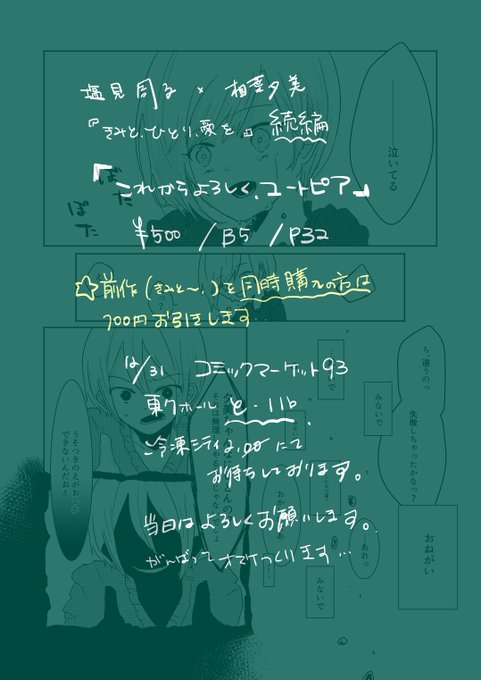 塩見周子 × 相葉夕美
『きみと、ひとり、愛を』続編
『これからよろしく、ユートピア』
¥500 / B5 / P32
☆前作(きみと〜、)と同時購入の方は
100円お引きします
12/31 コミックマーケット93
東クホール と・11b
冷凍シティ2,00にて
お待ちしております。
当日はよろしくお願いします。
がんばってオマケつくります…
泣いてる
ぼた
ぼた
ち、違うのっ
失敗しちゃったかなっ?
みないで
みないで
おねがい
…あれっ
みないで
うそつきのえがおしか
できないんだねえ